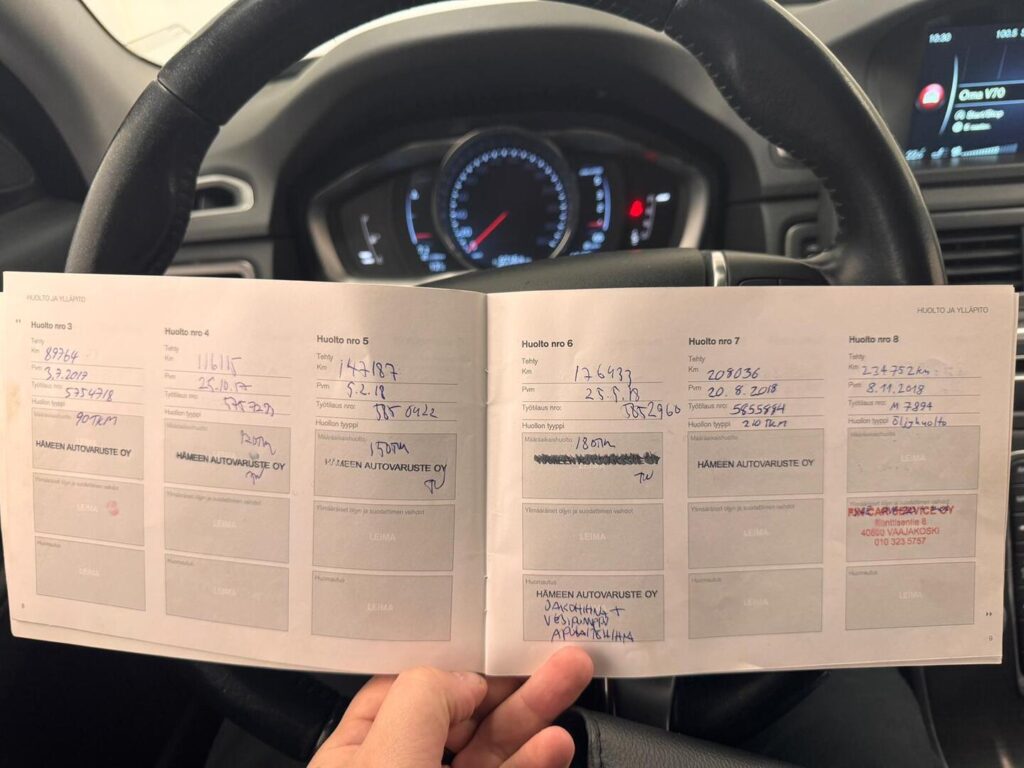 HUOLTO JA YLLÄPITO
Huolto nro 3
Tehty
Km 89764
Pvm 3.7.2017
Työtilaus nro: 5754718
Huollon tyyppi
90TKM
Määräaikaishuolto
HÄMEEN AUTOVARUSTE OY
Ylimääräinen öljyn ja suodattimen vaihdot
LEIMA
Huomautus
LEIMA
Huolto nro 4
Tehty
Km 116115
Pvm 25.10.17
Työtilaus nro:
Huollon tyyppi
120TKM
HÄMEEN AUTOVARUSTE OY
Ylimääräinen öljyn ja suodattimen vaihdot
LEIMA
Huomautus
LEIMA
Huolto nro 5
Tehty
Km 147187
Pvm 5.2.18
Työtilaus nro: 5850422
Huollon tyyppi
Määräaikaishuolto
150TKM
HÄMEEN AUTOVARUSTE OY
Ylimääräinen öljyn ja suodattimen vaihdot
LEIMA
Huomautus
LEIMA
8
HUOLTO JA YLLÄPITO
Huolto nro 6
Tehty
Km 176433
Pvm
Työtilaus nro: 5852960
Huollon tyyppi
Määräaikaishuolto
HÄMEEN AUTOVARUSTE OY
Ylimääräinen öljyn ja suodattimen vaihdot
LEIMA
Huomautus
HÄMEEN AUTOVARUSTE OY
JAKOHIHNA +
VESIPUMPPU
APULAITEHIHNA
Huolto nro 7
Tehty
Km 208036
Pvm 20.8.2018
Työtilaus nro: 5855884
Huollon tyyppi 210TKM
Määräaikaishuolto
HÄMEEN AUTOVARUSTE OY
Ylimääräinen öljyn ja suodattimen vaihdot
LEIMA
Huomautus
LEIMA
Huolto nro 8
Tehty
Km 234752km
Pvm 8.11.2018
Työtilaus nro: M7894
Huollon tyyppi Öljyhuolto
Määräaikaishuolto
LEIMA
Ylimääräinen öljyn ja suodattimen vaihdot
40800 VAAJAKOSKI
010 323 5757
Huomautus
LEIMA
9
10:30
Oma V70
Start/Stop